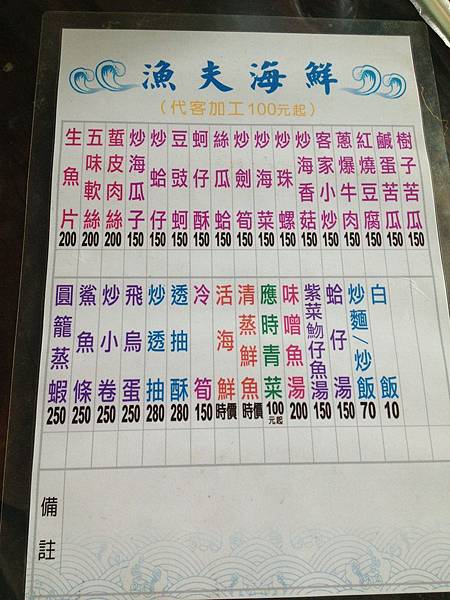 漁夫海鮮
（代客加工100元起）
生魚片 200
五味軟絲 200
蜇皮肉絲 200
炒海瓜子 150
炒蛤仔 150
豆豉蚵 150
蚵仔酥 150
絲瓜蛤 150
炒劍筍 150
炒海菜 150
炒珠螺 150
炒海香菇 150
客家小炒 150
蔥爆牛肉 150
紅燒豆腐 150
鹹蛋苦瓜 150
樹子苦瓜 150
圓籠蒸蝦 250
鯊魚條 250
炒小卷 250
飛烏蛋 250
炒透抽 280
透抽酥 280
冷筍 150
活海鮮 時價
清蒸鮮魚 時價
應時青菜 100元起
味噌魚湯 200
紫菜魩仔魚湯 150
蛤仔湯 150
炒麵/炒飯 70
白飯 10
備註